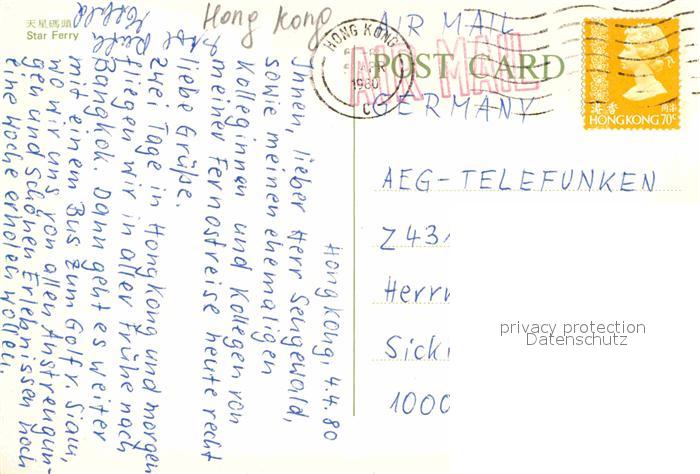 天星碼頭
Star Ferry
Hong Kong
HONG KONG
1980
C
AIR MAIL
POST CARD
AIR MAIL
GERMANY
港香
HONG KONG 70c
AEG-TELEFUNKEN
Z 43
Herrn
Sick
1000
privacy protection
Datenschutz
Hongkong, 4.4.80
Ihnen, lieber Herr Sengewald,
sowie meinen ehemaligen
Kolleginnen und Kollegen von
meiner Fernostreise heute recht
liebe Grüße.
Zwei Tage in Hongkong und morgen
fliegen wir in aller Frühe nach
Bangkok. Dann geht es weiter
mit einem Bus zum Golf v. Siam,
wo wir uns von allen Anstrengun-
gen und schönen Erlebnissen noch
eine Woche erholen wollen.